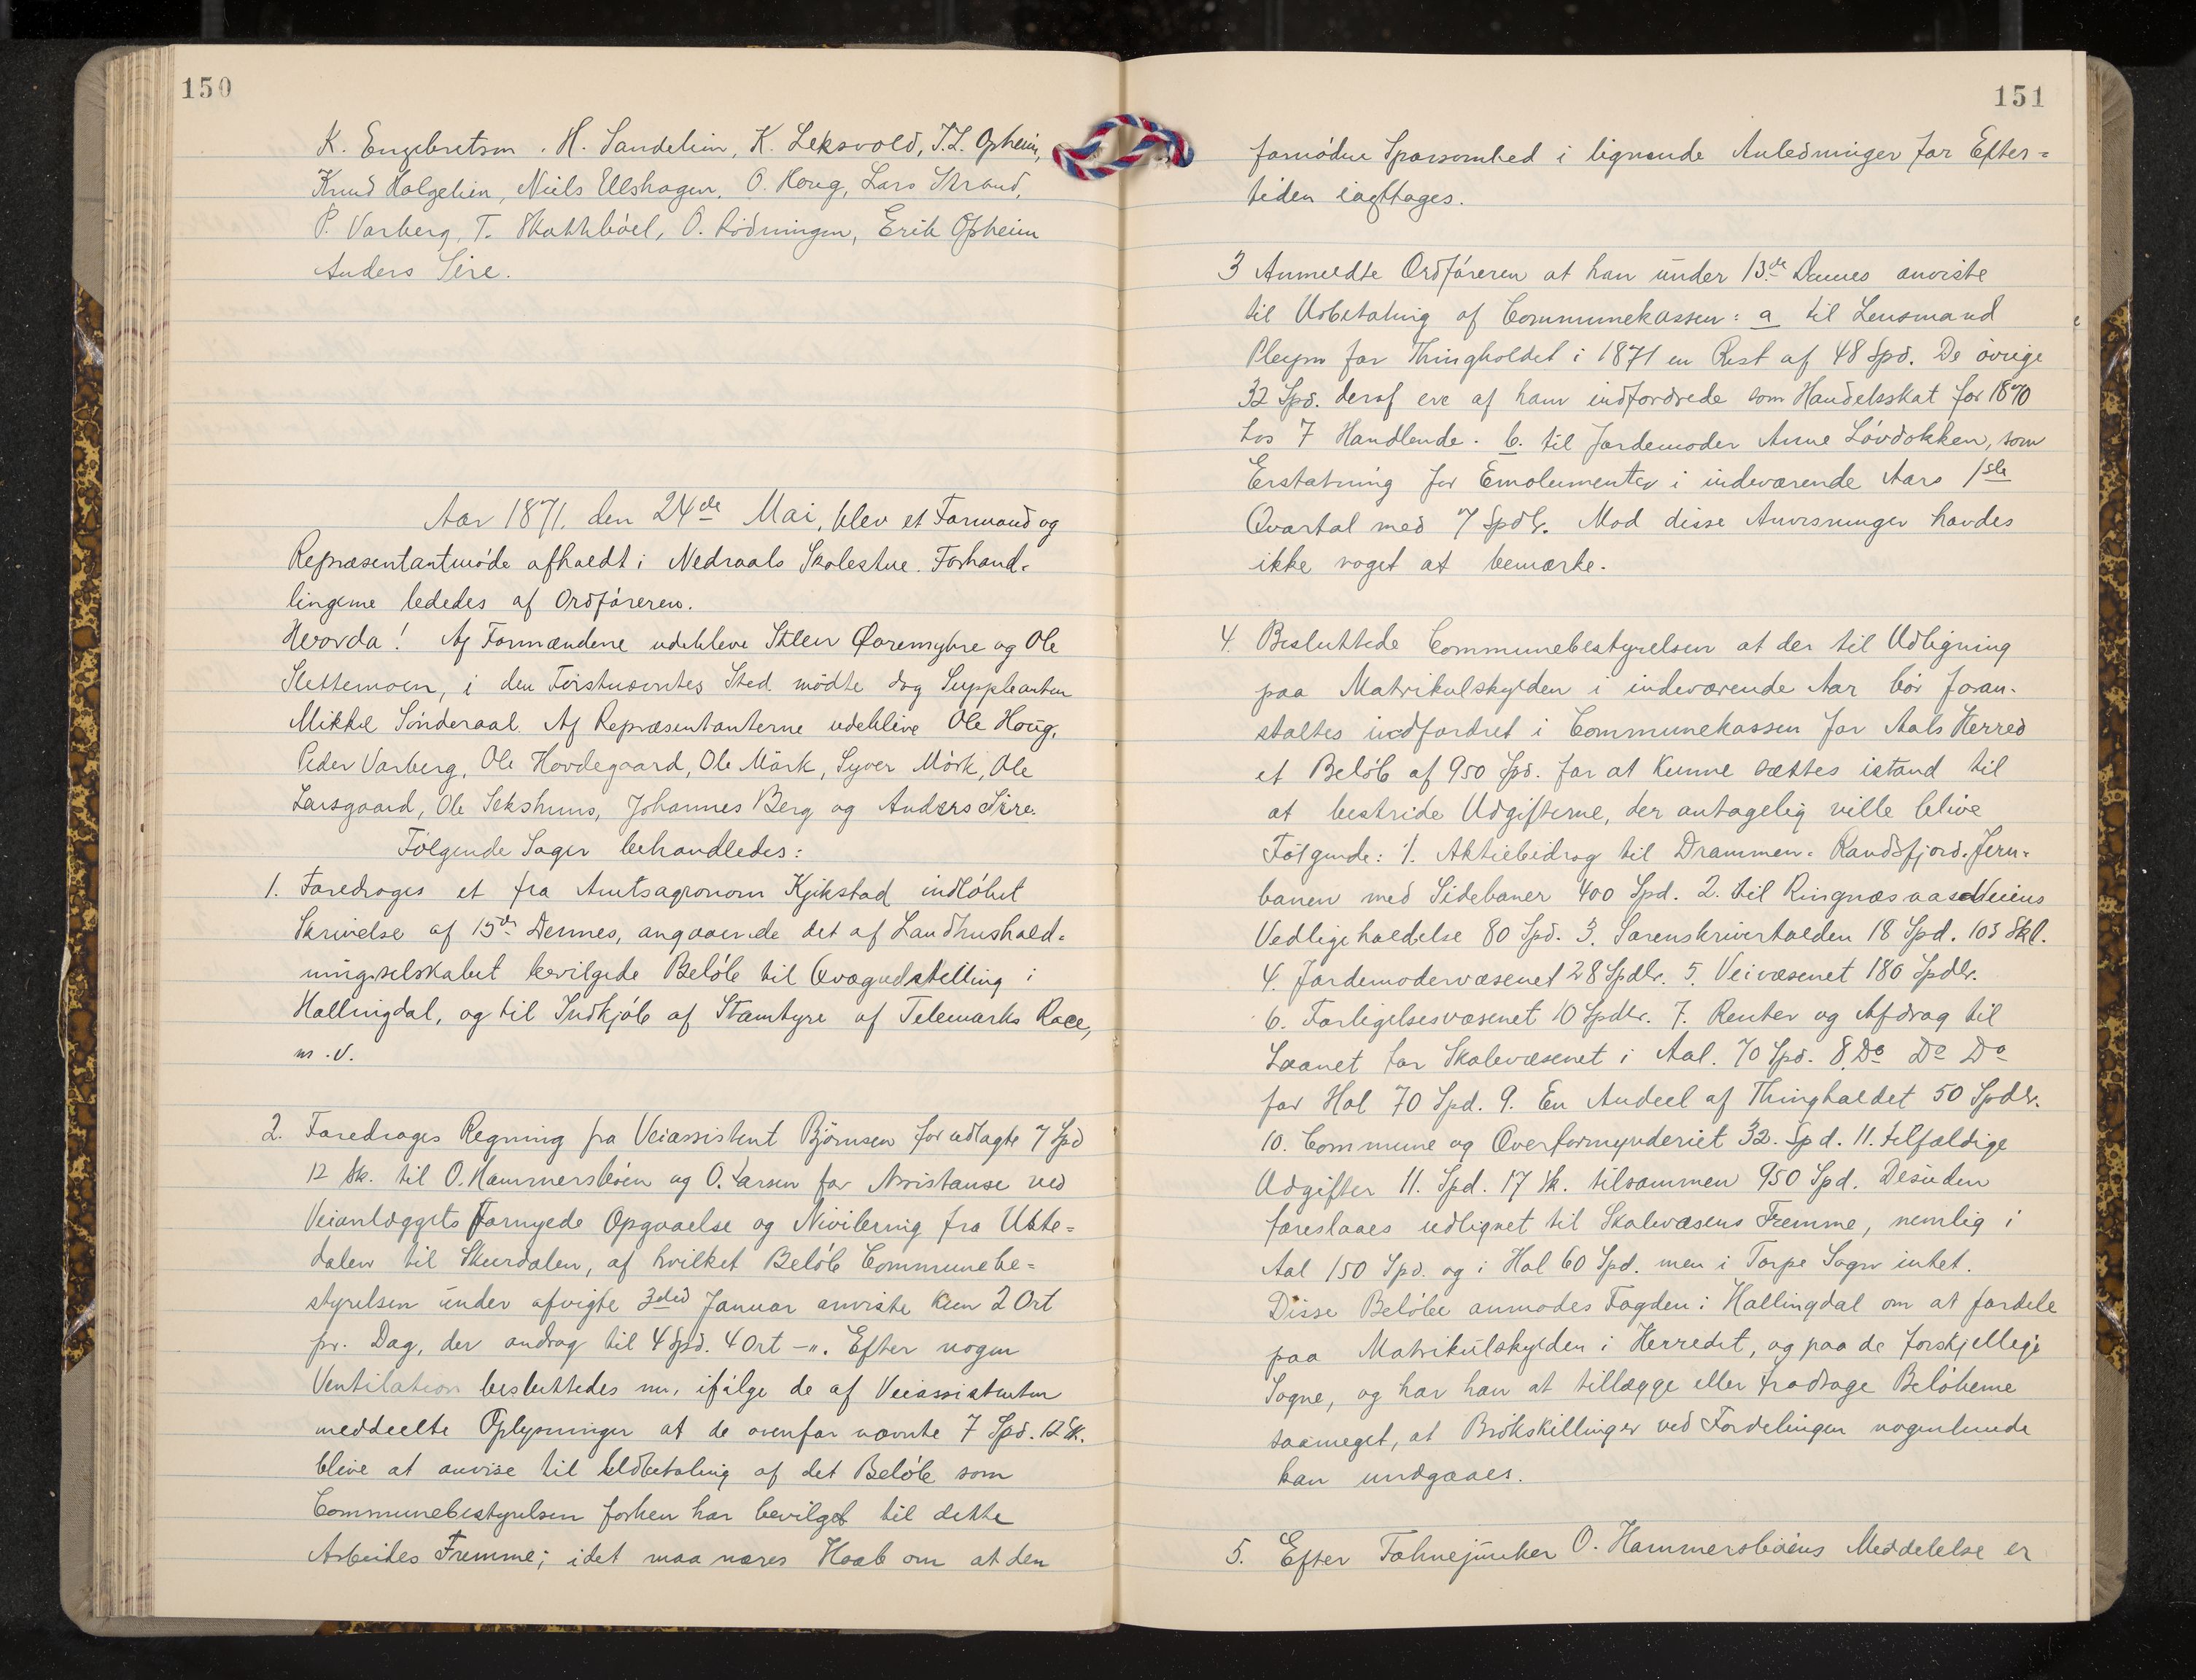 150
K. Engebretsen. H. Sandelien, K. Leksvold, T.L. Opheim,
Knud Holgelien, Niels Ulshagen, O. Houg, Lars Strand,
P. Varberg, T. Skatthböel, O. Rödningen, Erik Opheim
Anders Sire.
Aar 1871. den 24de Mai, blev et Formand og
Repræsentantmöde afholdt i Nedraals Skolestue. Forhand-
lingerne lededes af Ordföreren.
Hvorda! Af Formændene udebleve Sten Øvremyhre og Ole
Slettemoen, i den Förstnævntes Sted mödte dog Suppleanten
Mikkel Sönderaal. Af Repræsentanterne udeblive Ole Houg,
Peder Varberg, Ole Hovdegaard, Ole Mörk, Syver Mörk, Ole
Larsgaard, Ole Sekshuus, Johannes Berg og Anders Sire.
Fölgende Sager behandledes:
1. Foredroges et fra Amtsagronom Kjikstad indlöbet
Skrivelse af 15de Dennes, angaaende det af Landhushold-
ningsselskabet bevilgede Belöb til Qvægudstilling i
Hallingdal, og til Indkjöb af Stamtyre af Telemarks Race,
m.v.
2. Foredroges Regning fra Veiassistent Björnsen for udlagte 7 Spd
12 Sk. til O. Hammersböen og O. Larsen for Assistanse ved
Veianlæggets Fornyede Opgaaelse og Nivilering fra Uste-
dalen til Skurdalen, af hvilket Belöb Communebe-
styrelsen under afvigte 3die Januar anviste kun 2 Ort
pr. Dag, der androg til 4 Spd. 4 Ort -". Efter nogen
Ventilation besluttedes nu, ifölge de af Veiassistenten
meddeelte Oplysninger at de ovenfor nævnte 7 Spd. 12 Sk.
blive at anvise til Udbetaling af det Belöb som
Communebestyrelsen forhen har bevilget til dette
Arbeides Fremme; idet maa næres Haab om at den
151
fornödne Sparsomhed i lignende Anledninger for Efter=
tiden iagttages.
3 Anmeldte Ordföreren at han under 13de Dennes anviste
til Udbetaling af Communekassen: a til Lensmand
Pleym for Thingholdet i 1871 en Rest af 48 Spd. De övrige
32 Spd. deraf ere af ham indfordrede som Handelsskat for 1870
hos 7 Handlende. b. til Jordemoder Anne Lövdokken, som
Erstatning for Emolumenter i indeværende Aars 1ste
Qvartal med 7 Spdlr. Mod disse Anvisninger havdes
ikke noget at bemærke.
4. Besluttede Communebestyrelsen at der til Udligning
paa Matrikulskylden i indeværende Aar bör foran-
staltes indfordret i Communekassen for Aals Herred
et Belöb af 950 Spd. for at kunne sættes istand til
at bestride Udgifterne, der antagelig ville blive
Fölgende: 1. Aktiebidrag til Drammen-Randsfjord-Jern-
banen med Sidebaner 400 Spd. 2. til Ringnæsaasveiens
Vedligeholdelse 80 Spd. 3. Sorenskrivertolden 18 Spd. 103 Skl.
4. Jordemodervæsenet 28 Spdlr. 5. Veivæsenet 180 Spdlr.
6. Forligelsesvæsenet 10 Spdlr. 7. Renter og Afdrag til
Laanet for Skolevæsenet i Aal. 70 Spd. 8. Do Do Do
for Hol 70 Spd. 9. En Andeel af Thingholdet 50 Spdlr.
10. Commune og Overformynderiet 32. Spd. 11. tilfældige
Udgifter 11. Spd. 17 Sk. tilsammen 950 Spd. Desuden
foreslaaes udlignet til Skolevæsens Fremme, nemlig i
Aal 150 Spd. og i Hol 60 Spd. men i Torpe Sogn intet.
Disse Belöbe anmodes Fogden i Hallingdal om at fordele
paa Matrikulskylden i Herredet, og paa de forskjellige
Sogne, og har han at tillægge eller fradrage Belöbene
saameget, at Brökskillinger ved Fordelingen nogenlunde
kan undgaaes.
5. Efter Fahnejunker O. Hammersböens Meddelelse er